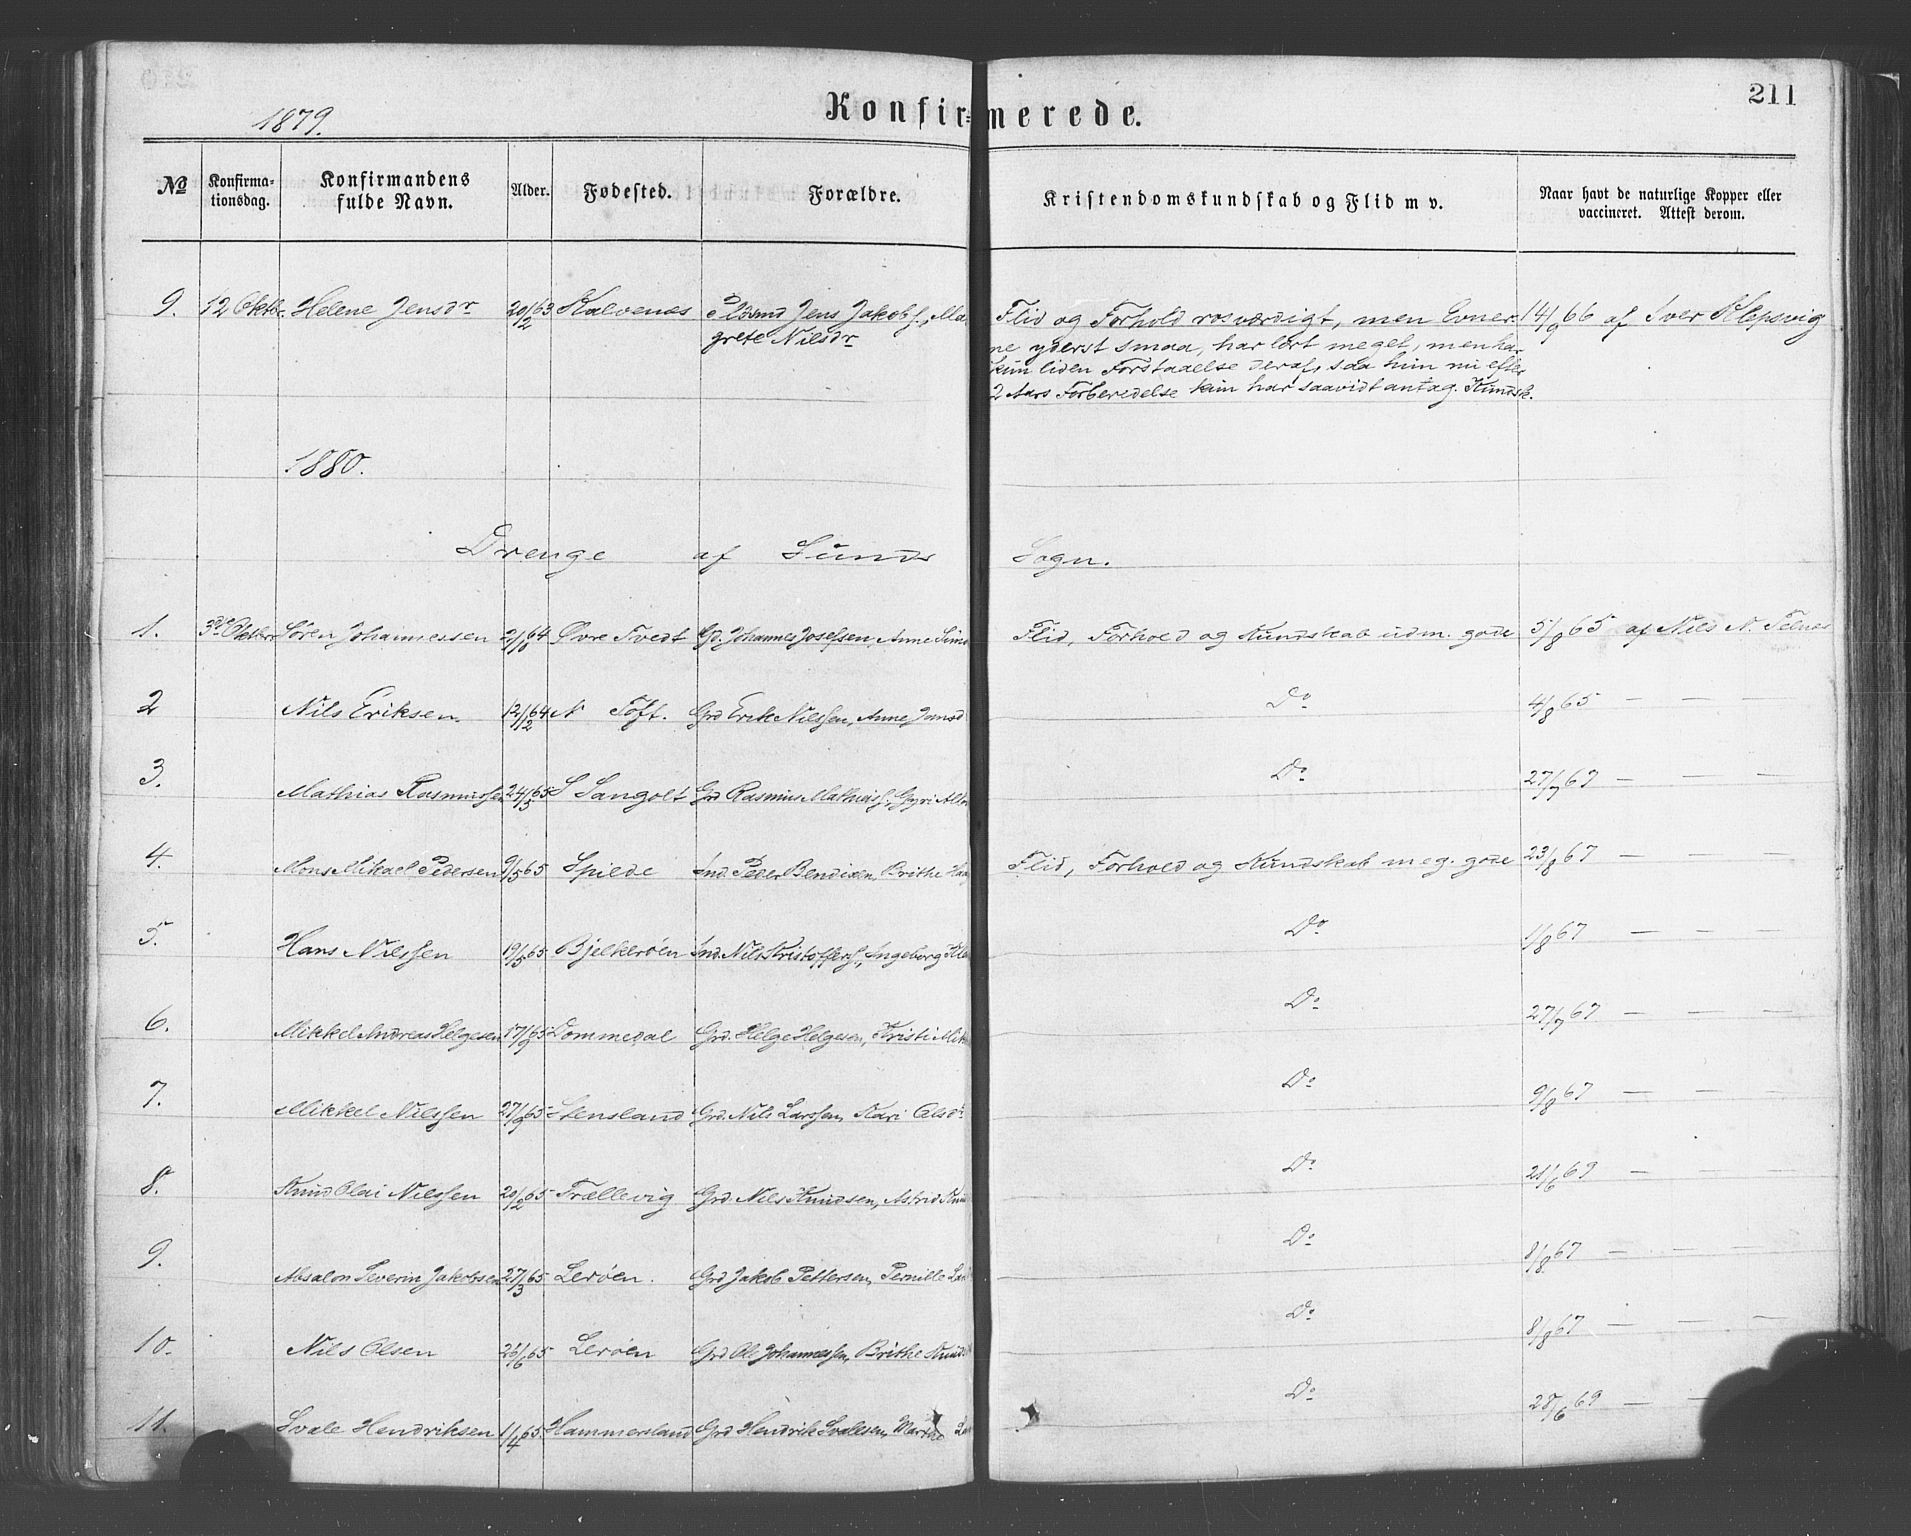 211
1879.
Konfirmerede.
No Konfirma-tionsdag. Konfirmandens fulde Navn. Alder. Fødested. Forældre. Kristendomskundskab og Flid m v. Naar havt de naturlige Kopper eller vaccineret. Attest derom.
9. 12 Oktbr. Helene Jensdr 20/2 63 Kalvenes Plsmd Jens Jakobs., Ma Flid og Forhold rosværdigt, men Evner 14/9 66 af Iver Klepsvig
grete Nilsdr ne yderst smaa, har lært meget, men har
kun liden Forstaaelse deraf, saa hun nu efter
2 Aars Forberedelse kun har saavidt antag. Kundsk.
1880.
Drenge af Sunds Sogn.
1. 3die Oktbr Søren Johannessen 21/6 64 Øvre Tvedt Gd. Johannes Josefsen, Anne Sims Flid, Forhold og Kundskab udm. gode 5/8 65 af Nils N. Telnes
2 Nils Eriksen. 12/2 64 N Toft. Grd Erik Nilssen, Anne Jansd Do 4/8 65 — — —
3. Mathias Rasmussen 24/5 65 S Sangolt Grd Rasmus Mathias., Gyri Do 27/7 67 — — —
4. Mons Mikael Pedersen 9/5 65 Spilde Ind. Peder Bendixen, Brithe Flid, Forhold og Kundskab meg. gode 23/8 67 — — —
5. Hans Nilssen 19/5 65 Bjelkerøen Ind. Nils Kristoffers., Ingeborg Do 1/8 67 — — —
6. Mikkel Andreas Helgesen 17/9 65 Dommedal Grd. Helge Helgesen, Kristi Mik Do 27/7 67 — — —
7. Mikkel Nilssen 27/9 65 Stensland Grd. Nils Larssen, Kari Olsdr Do 9/8 67 — — —
8. Knud Olai Nilssen 20/2 65 Trællevig Grd. Nils Knudsen, Astrid Do 21/6 69 — — —
9. Absalon Severin Jakobsen 27/3 65 Lerøen. Grd Jakob Pettersen, Pernille Do 8/8 67 — — —
10. Nils Olsen 26/6 65 Lerøen Grd Ole Johannessen, Brithe Knuds Do 8/8 67 — — —
11. Svale Hendriksen 1/4 65 Hammersland Grd Hendrik Svalesen, Marthe Do 28/6 69 — —